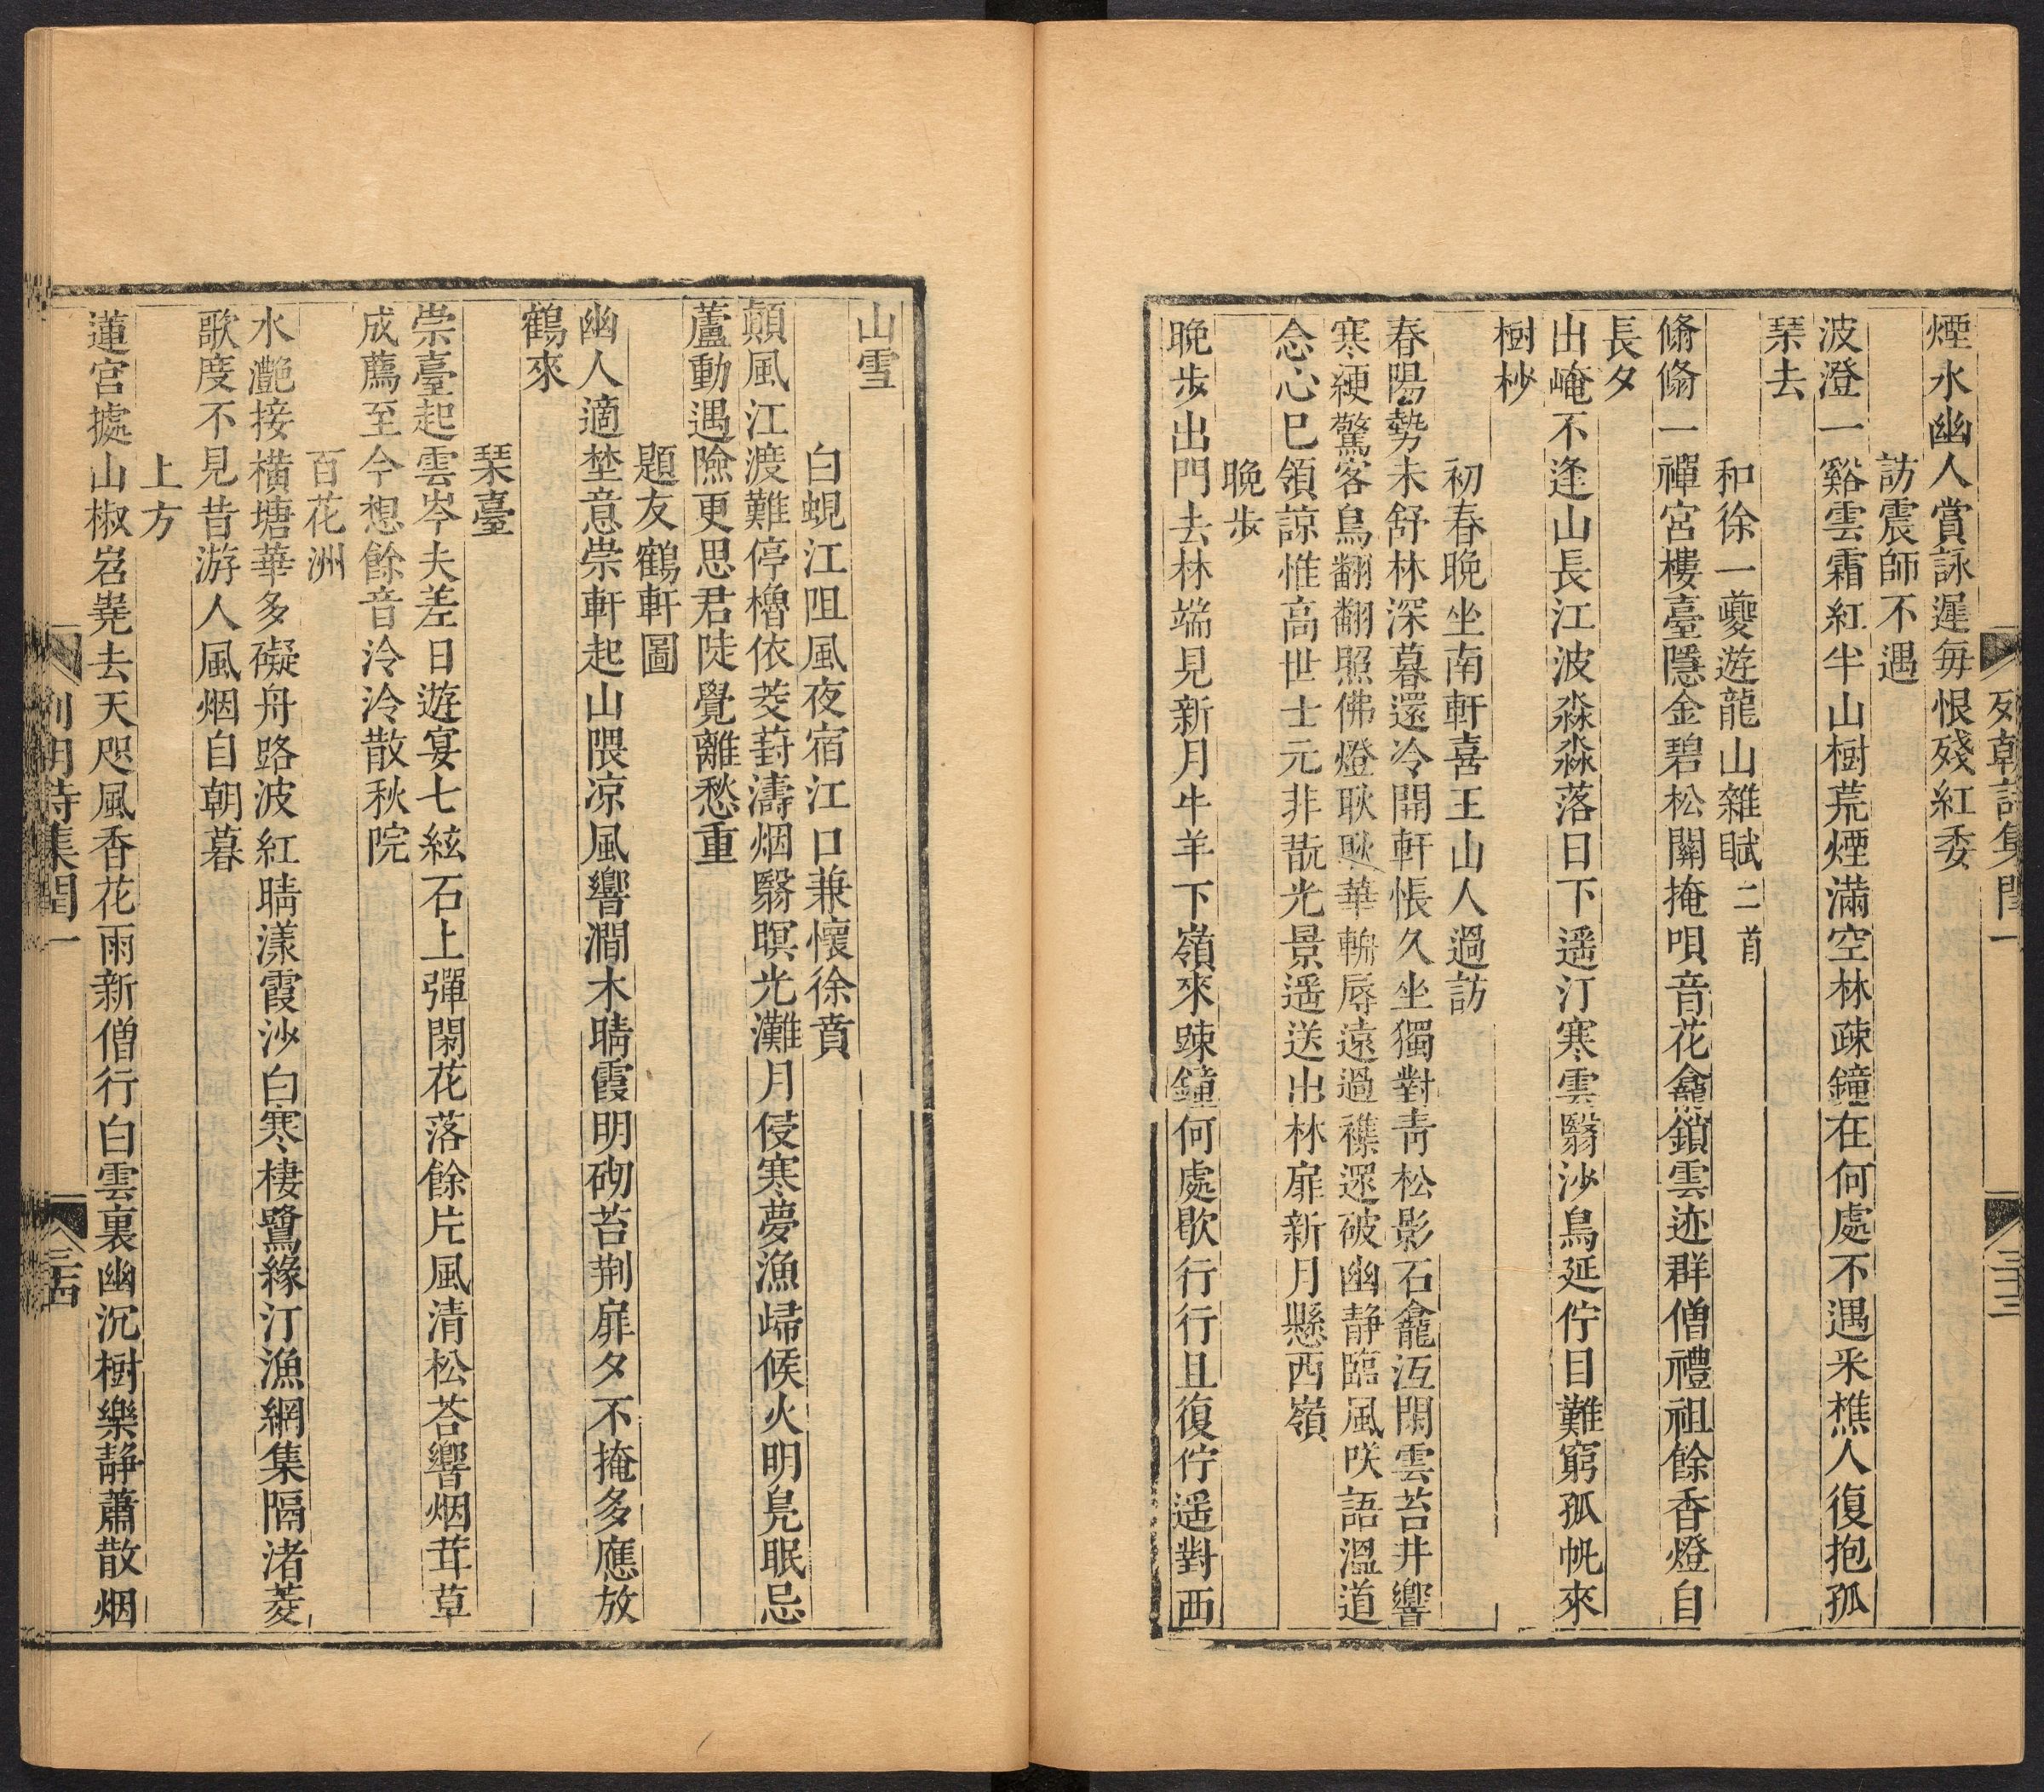 列朝詩集閏一
三十三
煙水幽人賞詠遲毎恨殘紅委
訪震師不遇
波澄一谿雲霜紅半山樹荒煙滿空林疎鐘在何處不遇釆樵人復抱孤
琹去
和徐一夔遊龍山雜賦二首
翛翛一禪宮樓臺隱金碧松關掩唄音花龕鎖雲迹群僧禮祖餘香燈自
長夕
出崦不逢山長江波淼淼落日下遥汀寒雲翳沙鳥延佇目難窮孤帆來
樹杪
初春晚坐南軒喜王山人過訪
春陽勢未舒林深暮還冷開軒悵久坐獨對靑松影石龕沍閑雲苔井響
寒綆驚客鳥翻翻照佛燈耿耿華輈辱遠過襟還破幽静臨風咲語溫道
念心已領諒惟高世士元非翫光景遥送出林扉新月懸西嶺
晚步
晚步出門去林端見新月牛羊下嶺來踈鐘何處歇行行且復佇遥對西
山雪
白蜆江阻風夜宿江口兼懷徐賁
顛風江渡難停櫓依茭葑濤烟翳暝光灘月侵寒夢漁歸候火明鳧眠忌
蘆動遇險更思君陡覺離愁重
題友鶴軒圖
幽人適埜意崇軒起山隈凉風響澗木晴霞明砌苔荆扉夕不掩多應放
鶴來
琹臺
崇臺起雲岑夫差日遊宴七絃石上彈閑花落餘片風清松荅響烟茸草
成薦至今想餘音泠泠散秋院
百花洲
水灔接橫塘華多礙舟路波紅晴漾霞沙白寒棲鷺緣汀漁網集隔渚菱
歌度不見昔游人風烟自朝暮
上方
蓮宮㨿山椒岧嶤去天咫風香花雨新僧行白雲裏幽沉樹樂静蕭散烟
列朝詩集閏一
三十四